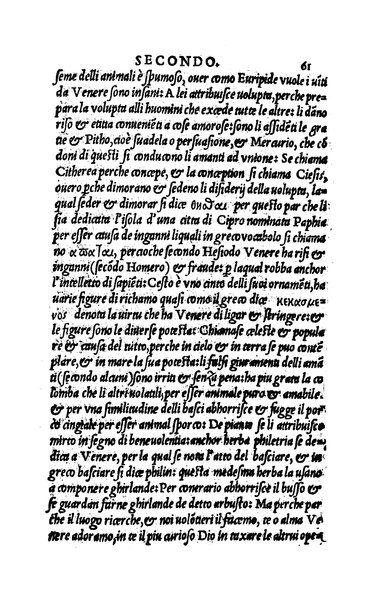 SECONDO. 61
seme delli animali è spumoso, ouer como Euripide vuole i uiti
da Venere sono insani: A lei attribuisce volupta, perche pre-
para la volupta alli huomini che excede tutte le altre: li dāno
riso & etitia conueniēti a cose amorose: sono li assidēti le gra
tie & Pitho, cioè suadela o persuasione, & Mercurio, che cō
doni di questi si conducono li amanti ad vnione: Se chiama
Citherea perche concepe, & la conception si chiama Ciesis,
ouero pche dimorano & sedeno li disiderij della volupta, la-
qual seder & dimorar si dice per questo par che li
sia dedicata l'isola d'una citta di Cipro nominata Paphia
per esser causa de inganni liquali in greco vocabolo si chiama
no percioche secondo Hesiodo Venere ha risi &
inganni (secōdo Homero) & fraude: p laqual robba anchor
l'intelletto di sapiēti: Cesto è vno cinto delli suoi ornamēti, ha
uarie figure di richamo quasi como il greco dice κεκασμε-
νος denota la uirtu che ha Venere di ligar & stringere: &
le figure sono le diuerse potesta: Chiamase celeste & popula
re & causa del tutto, perche in cielo & in terra se puo contē
plare, & in mare la sua potesta: li falsi giuramenti delli amā
ti (secondo alcuni) sono irriti & senza pena: ha piu grata la co
lomba che li altri uolatili, per esser animale puro & amabile.
& per vna similitudine delli basci abhorrisce & fugge il por
co cingiale per esser animal sporco: De piante se li attribuisce
mirto in segno di beneuolentia: anchor herba philetria se de-
dica a Venere, per la qual se nota l'atto del basciare, & in
greco basciare si dice philin: questa medesma herba la usano
a componere ghirlande: Per contrario abhorrisce il busso &
se guardan farne ghirlande de detto arbusto: Ma perche par
che il luogo ricerche, & noi volōtieri il facemo, te o alma Ve
nere adoramo, in te il piu curioso Dio in taxare le altrui ope-